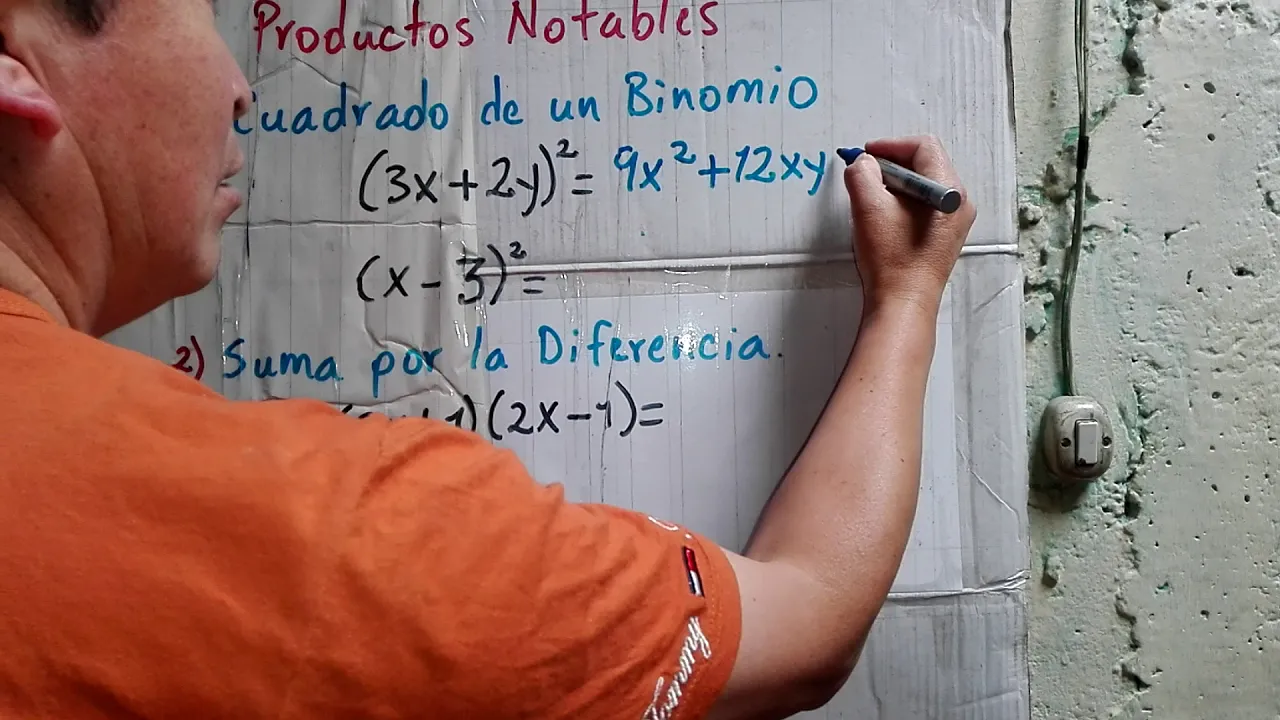 Productos Notables
Cuadrado de un Binomio
(3x+2y)²= 9x²+12xy
(x-3)²=
2) Suma por la Diferencia.
1)(2x-1)=